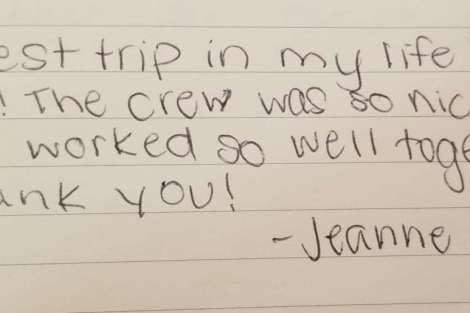 est trip in my life
! The crew was so nic
worked so well toge
ank you!
-Jeanne